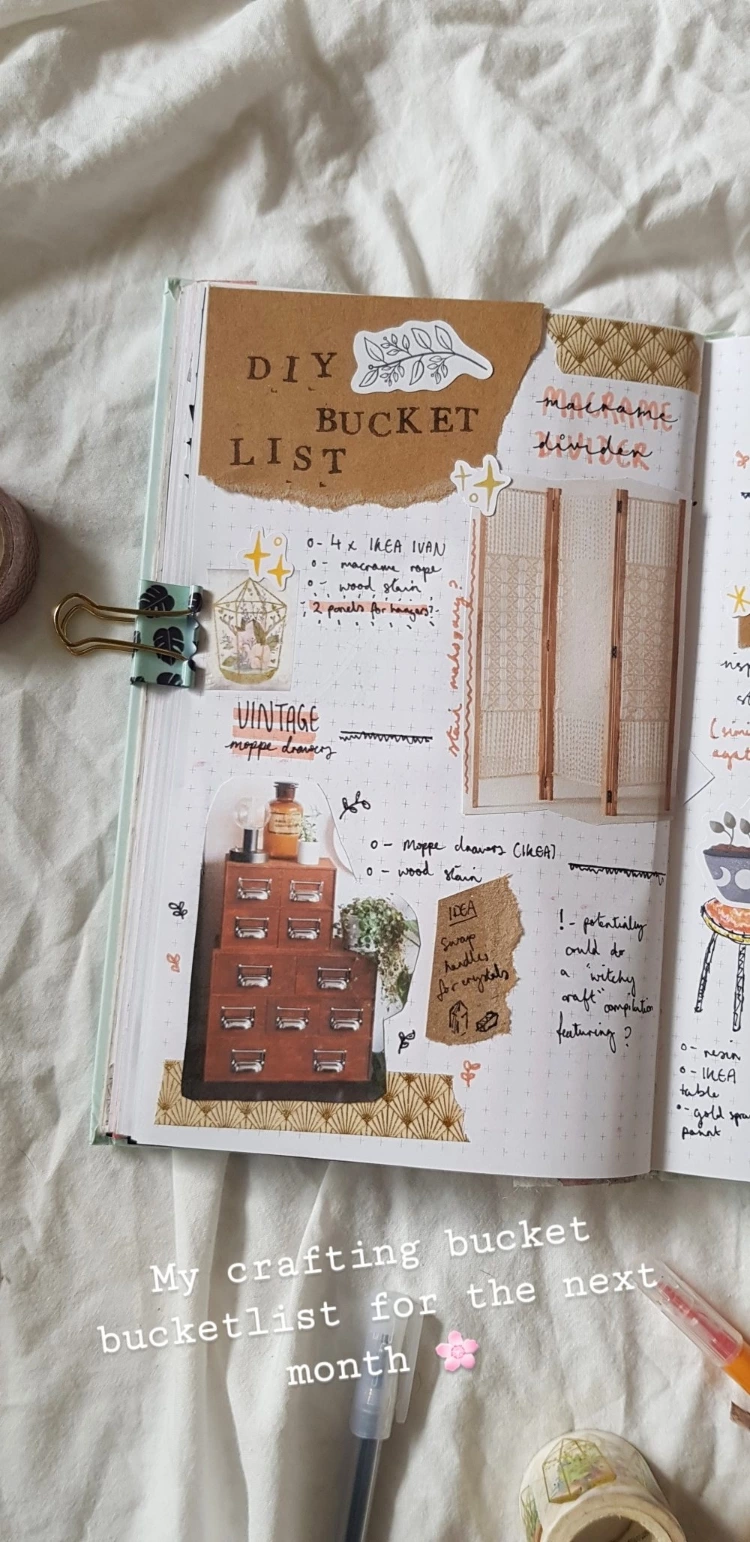 DIY
BUCKET
LIST
MACRAME
macrame
DIVIDER
divider
o- 4 x IKEA IVAN
o- macrame rope
o- wood stain
- 2 panels for hangers?
stain mahogany?
VINTAGE
moppe drawers
o- Moppe drawers (IKEA)
o- wood stain
IDEA
swap
handles
for crystals
!- potentially
could do
a "witchy
craft" compilation
featuring?
o- resin
o- IKEA
table
o- gold spra
paint
My crafting bucket
bucketlist for the next
month 🌸